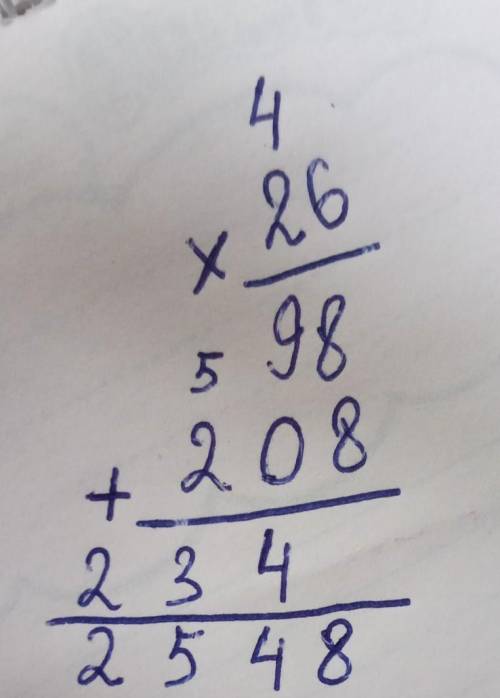 4
× 26
98
5
+ 208
234
2548